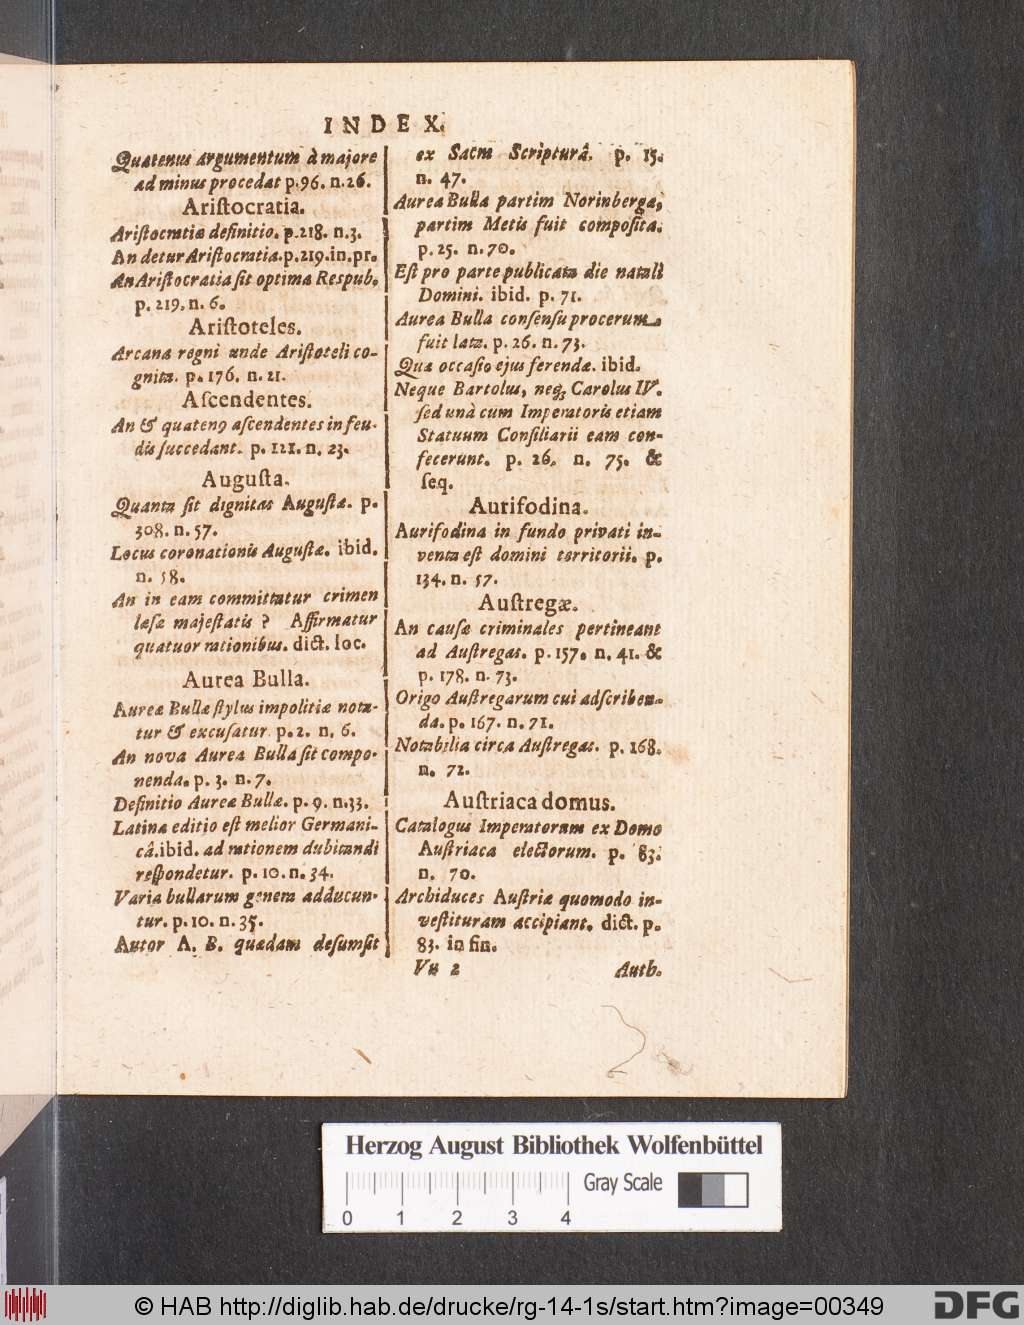 INDEX.
Quatenus argumentum à majore
ad minus procedat p.96. n.26.
Ariſtocratia.
Ariſtocratiæ definitio. p.218. n.3.
An detur Ariſtocratia. p.219. in.pr.
An Ariſtocratia ſit optima Reſpub.
p. 219. n. 6.
Ariſtoteles.
Arcana regni unde Ariſtoteli co-
gnita. p. 176. n. 21.
Aſcendentes.
An & quatenꝰ aſcendentes in feu-
dis ſuccedant. p. 121. n. 23.
Auguſta.
Quanta ſit dignitas Auguſtæ. p.
308. n. 57.
Locus coronationis Auguſtæ. ibid.
n. 58.
An in eam committatur crimen
læſæ majeſtatis? Affirmatur
quatuor rationibus. dict. loc.
Aurea Bulla.
Aureæ Bullæ ſtylus impolitiæ nota-
tur & excuſatur. p.2. n. 6.
An nova Aurea Bulla ſit compo-
nenda. p. 3. n. 7.
Definitio Aureæ Bullæ. p. 9. n.33.
Latina editio eſt melior Germani-
câ. ibid. ad rationem dubitandi
reſpondetur. p. 10. n. 34.
Varia bullarum genera adducun-
tur. p. 10. n. 35.
Autor A. B. quædam deſumſit
ex Sacra Scripturâ. p. 15.
n. 47.
Aurea Bulla partim Norinbergæ,
partim Metis fuit compoſita.
p. 25. n. 70.
Eſt pro parte publicata die natali
Domini. ibid. p. 71.
Aurea Bulla conſenſu procerum
fuit lata. p. 26. n. 73.
Quæ occaſio ejus ferendæ. ibid.
Neque Bartolus, neq; Carolus IV.
ſed unà cum Imperatoris etiam
Statuum Conſiliarii eam con-
fecerunt. p. 26. n. 75. &
ſeq.
Aurifodina.
Aurifodina in fundo privati in-
venta eſt domini territorii. p.
134. n. 57.
Auſtregæ.
An cauſæ criminales pertineant
ad Auſtregas. p. 157. n. 41. &
p. 178. n. 73.
Origo Auſtregarum cui adſcriben-
da. p. 167. n. 71.
Notabilia circa Auſtregas. p. 168.
n. 72.
Auſtriaca domus.
Catalogus Imperatorum ex Domo
Auſtriaca electorum. p. 83.
n. 70.
Archiduces Auſtriæ quomodo in-
veſtituram accipiant. dict. p.
83. in fin.
Vu 2 Auth.
Herzog August Bibliothek Wolfenbüttel
Gray Scale
0 1 2 3 4
© HAB http://diglib.hab.de/drucke/rg-14-1s/start.htm?image=00349
DFG